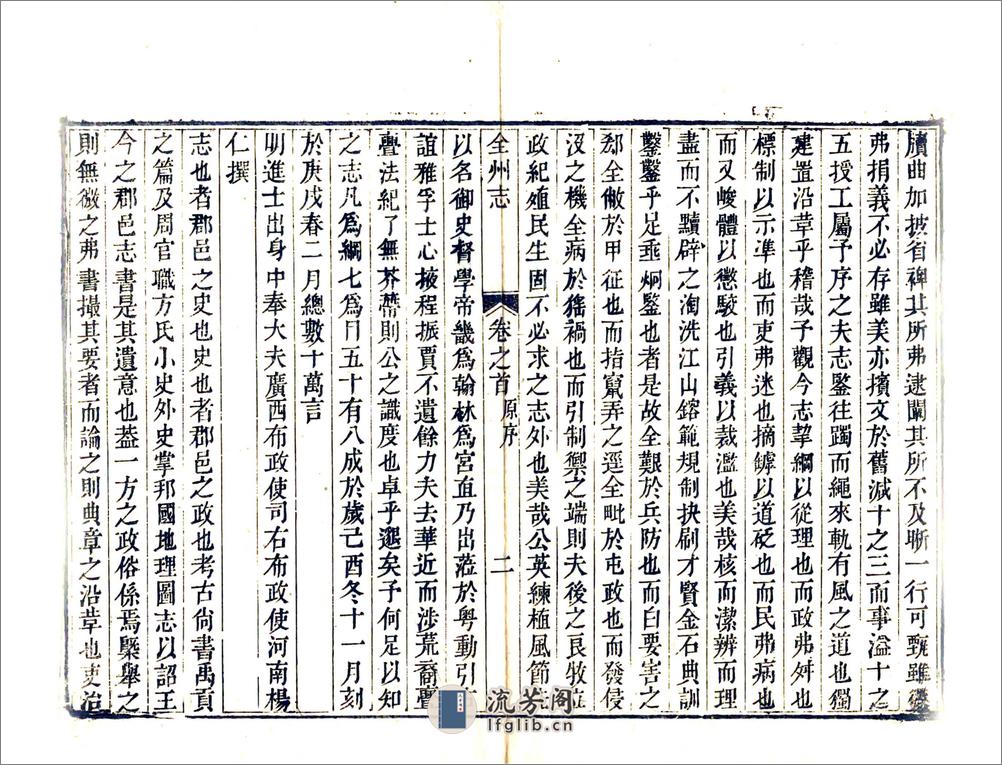 牘曲加披省裨其所弗逮闡其所不及晰一行可甄雖微
弗捐義不必存雖美亦擯文於舊減十之三而事溢十之
五授工屬予序之夫志鑒往躅而繩來軌有風之道也獨
建置沿革乎稽哉予觀今志挈綱以從理也而政弗舛也
標制以示準也而吏弗迷也摘罅以道砭也而民弗病也
而又峻體以懲駮也引義以裁濫也美哉核而潔辨而理
盡而不黷辟之淘洗江山鎔範規制抉刷才賢金石典訓
鑿鑿乎足垂炯鑒也者是故全艱於兵防也而白要害之
郄全敝於甲征也而指竄弄之逕全毗於屯政也而發侵
沒之機全病於猺禍也而引制禦之端則夫後之良牧位
政紀殖民生固不必求之志外也美哉公英練植風節
全州志 卷之首 原序 二
以名御史督學帝畿為翰林為宮直乃出蒞於粵動引
誼雅孚士心掖程振賈不遺餘力夫去華近而涉荒裔
疊法紀了無芥蔕則公之識度也卓乎邈矣予何足以知
之志凡為綱七為目五十有八成於歲己酉冬十一月刻
於庚戌春二月總數十萬言
明進士出身中奉大夫廣西布政使司右布政使河南楊
仁撰
志也者郡邑之史也史也者郡邑之政也考古尚書禹貢
之篇及周官職方氏小史外史掌邦國地理圖志以詔王
今之郡邑志書是其遺意也蓋一方之政俗係焉槩舉之
則無徵之弗書撮其要者而論之則典章之沿革也吏治
流芳阁
lfglib.cn